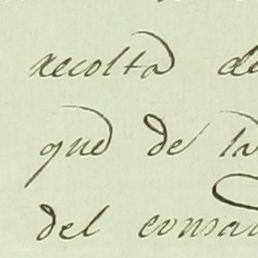 recolta de
que de la
del consa